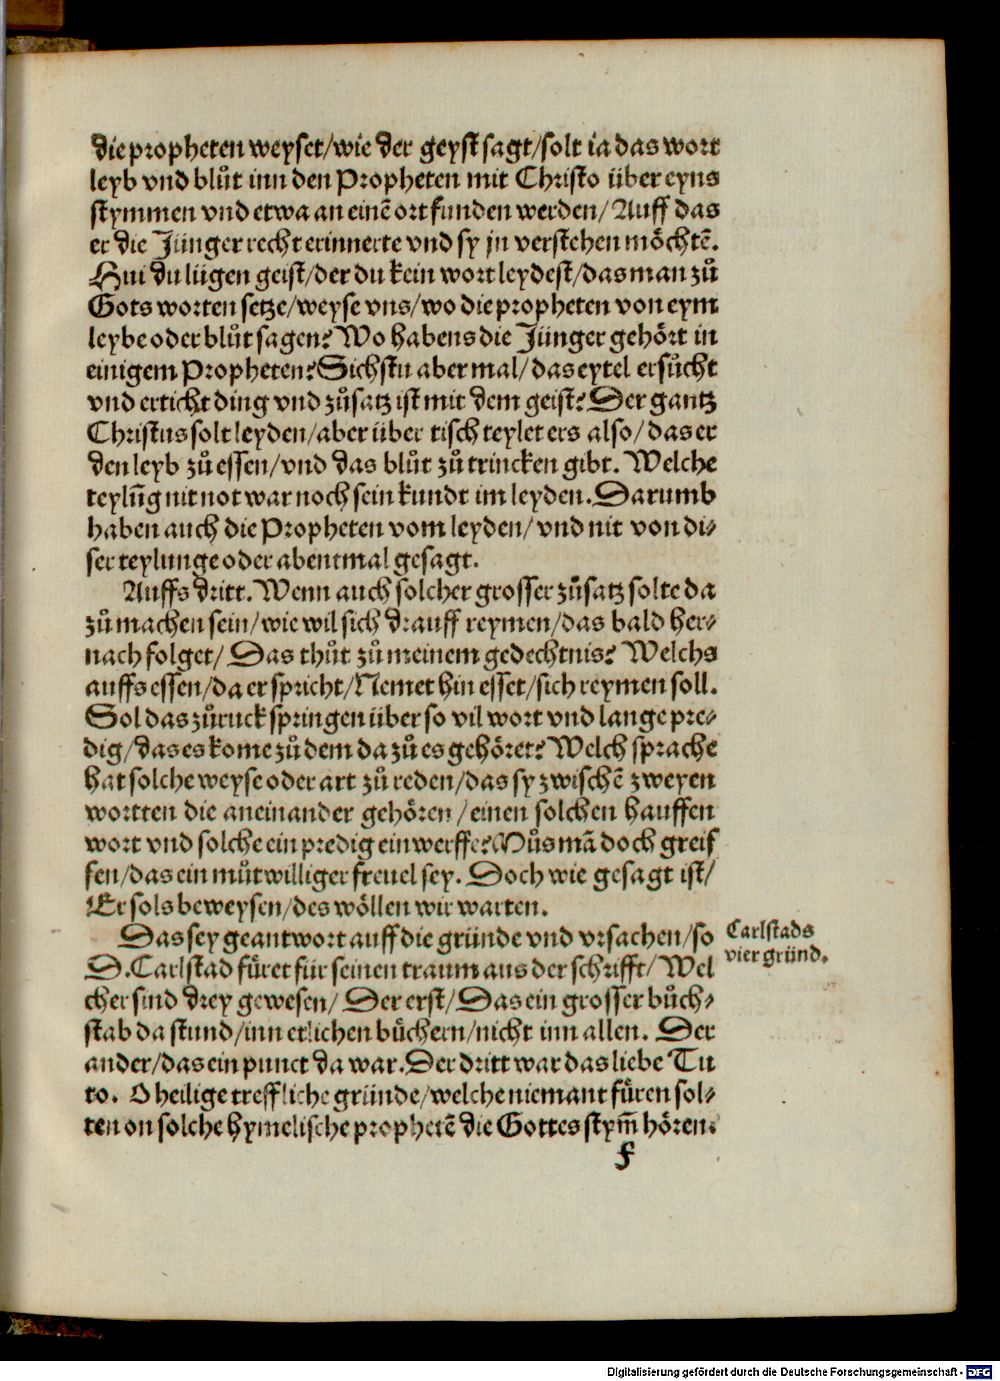 die propheten weyset/wie der geyst sagt/solt ia das wort
leyb vnd blůt inn den Propheten mit Christo über eyns
stymmen vnd etwa an einē ort funden werden/Auff das
er die Jünger recht erinnerte vnd sy jn verstehen möchtē.
Hui du lügen geist/der du kein wort leydest/das man zů
Gots worten setze/weyse vns/wo die propheten von eym
leybe oder blůt sagen? Wo habens die Jünger gehört in
einigem Propheten? Sichstu aber mal/das eytel ersůcht
vnd erticht ding vnd zůsatz ist mit dem geist? Der gantz
Christus solt leyden/aber über tisch teylet ers also/das er
den leyb zů essen/vnd das blůt zů trincken gibt. Welche
teylūg nit not war noch sein kundt im leyden. Darumb
haben auch die Propheten vom leyden/vnd nit von di⸗
ser teylunge oder abentmal gesagt.
Auffs dritt. Wenn auch solcher grosser zůsatz solte da
zů machen sein/wie wil sich drauff reymen/das bald her⸗
nach folget/ Das thůt zů meinem gedechtnis? Welchs
auffs essen/da er spricht/Nemet hin esset/sich reymen soll.
Sol das zůruck springen über so vil wort vnd lange pre⸗
dig/das es kome zů dem da zů es gehöret? Welch sprache
hat solche weyse oder art zů reden/das sy zwischē zweyen
wortten die aneinander gehören/einen solchen hauffen
wort vnd solche ein predig einwerffe? Můs mā doch greif
fen/das ein můtwilliger freuel sey. Doch wie gesagt ist/
Er sols beweysen/des wöllen wir warten.
Das sey geantwort auff die gründe vnd vrsachen/so
D. Carlstad füret für seinen traum aus der schrifft/Wel
cher sind drey gewesen/ Der erst/Das ein grosser bůch⸗
stab da stund/inn etlichen büchern/nicht inn allen. Der
ander/das ein punct da war. Der dritt war das liebe Tu
to. O heilige treffliche gründe/welche niemant füren sol⸗
ten on solche hymelische prophetē die Gottes stym̄ hören.
f
Carlstads
vier gründ.
Digitalisierung gefördert durch die Deutsche Forschungsgemeinschaft - DFG